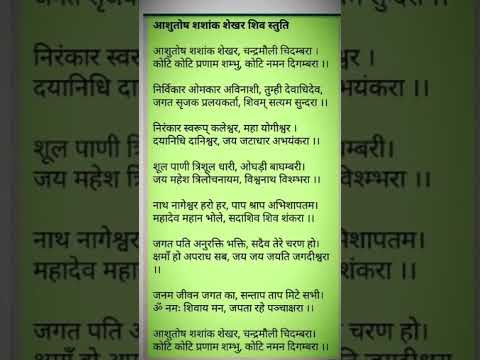 आशुतोष शशांक शेखर शिव स्तुति
आशुतोष शशांक शेखर, चन्द्रमौली चिदम्बरा ।
कोटि कोटि प्रणाम शम्भु, कोटि नमन दिगम्बरा ।।
निर्विकार ओमकार अविनाशी, तुम्ही देवाधिदेव,
जगत सृजक प्रलयकर्ता, शिवम् सत्यम सुन्दरा ।।
निरंकार स्वरूप् कलेश्वर, महा योगीश्वर ।
दयानिधि दानिश्वर, जय जटाधार अभयंकरा ।।
शूल पाणी त्रिशूल धारी, ओघड़ी बाघम्बरी।
जय महेश त्रिलोचनायम, विश्वनाथ विश्म्भरा ।।
नाथ नागेश्वर हरो हर, पाप श्राप अभिशापतम।
महादेव महान भोले, सदाशिव शिव शंकरा ।।
जगत पति अनुरक्ति भक्ति, सदैव तेरे चरण हो।
क्षमाँ हो अपराध सब, जय जय जयति जगदीश्वरा
।।
जनम जीवन जगत का, सन्ताप ताप मिटे सभी।
ॐ नमः शिवाय मन, जपता रहे पञ्चाक्षरा ।।
आशुतोष शशांक शेखर, चन्द्रमौली चिदम्बरा।
कोटि कोटि प्रणाम शम्भु, कोटि नमन दिगम्बरा ।।